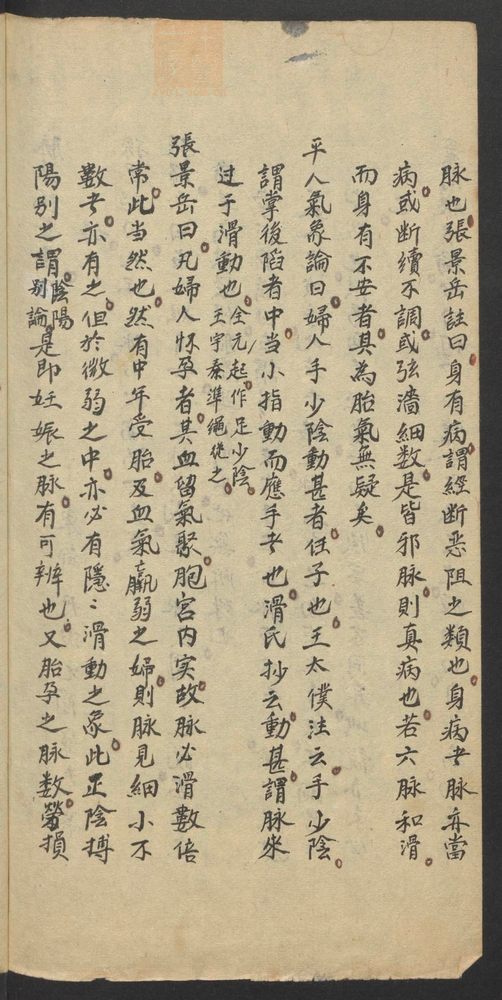 脉也張景岳註曰身有病謂經断惡阻之類也身病者脉亦當
病或断續不調或弦濇細数是皆邪脉則真病也若六脉和滑
而身有不安者其為胎氣無疑矣
平人氣象論曰婦人手少陰動甚者任子也王太僕注云手少陰
謂掌後陷者中当小指動而應手者也滑氏抄云動甚謂脉來
过于滑動也全元起作足少陰
王宇泰準繩從之
張景岳曰凡婦人怀孕者其血留氣聚胞宮内实故脉必滑數倍
常此当然也然有中年受胎及血氣羸弱之婦則脉見細小不
數者亦有之但於微弱之中亦必有隱〻滑動之象此正陰搏
陽别之謂陰陽
别論是即妊娠之脉有可辨也又胎孕之脉数勞損